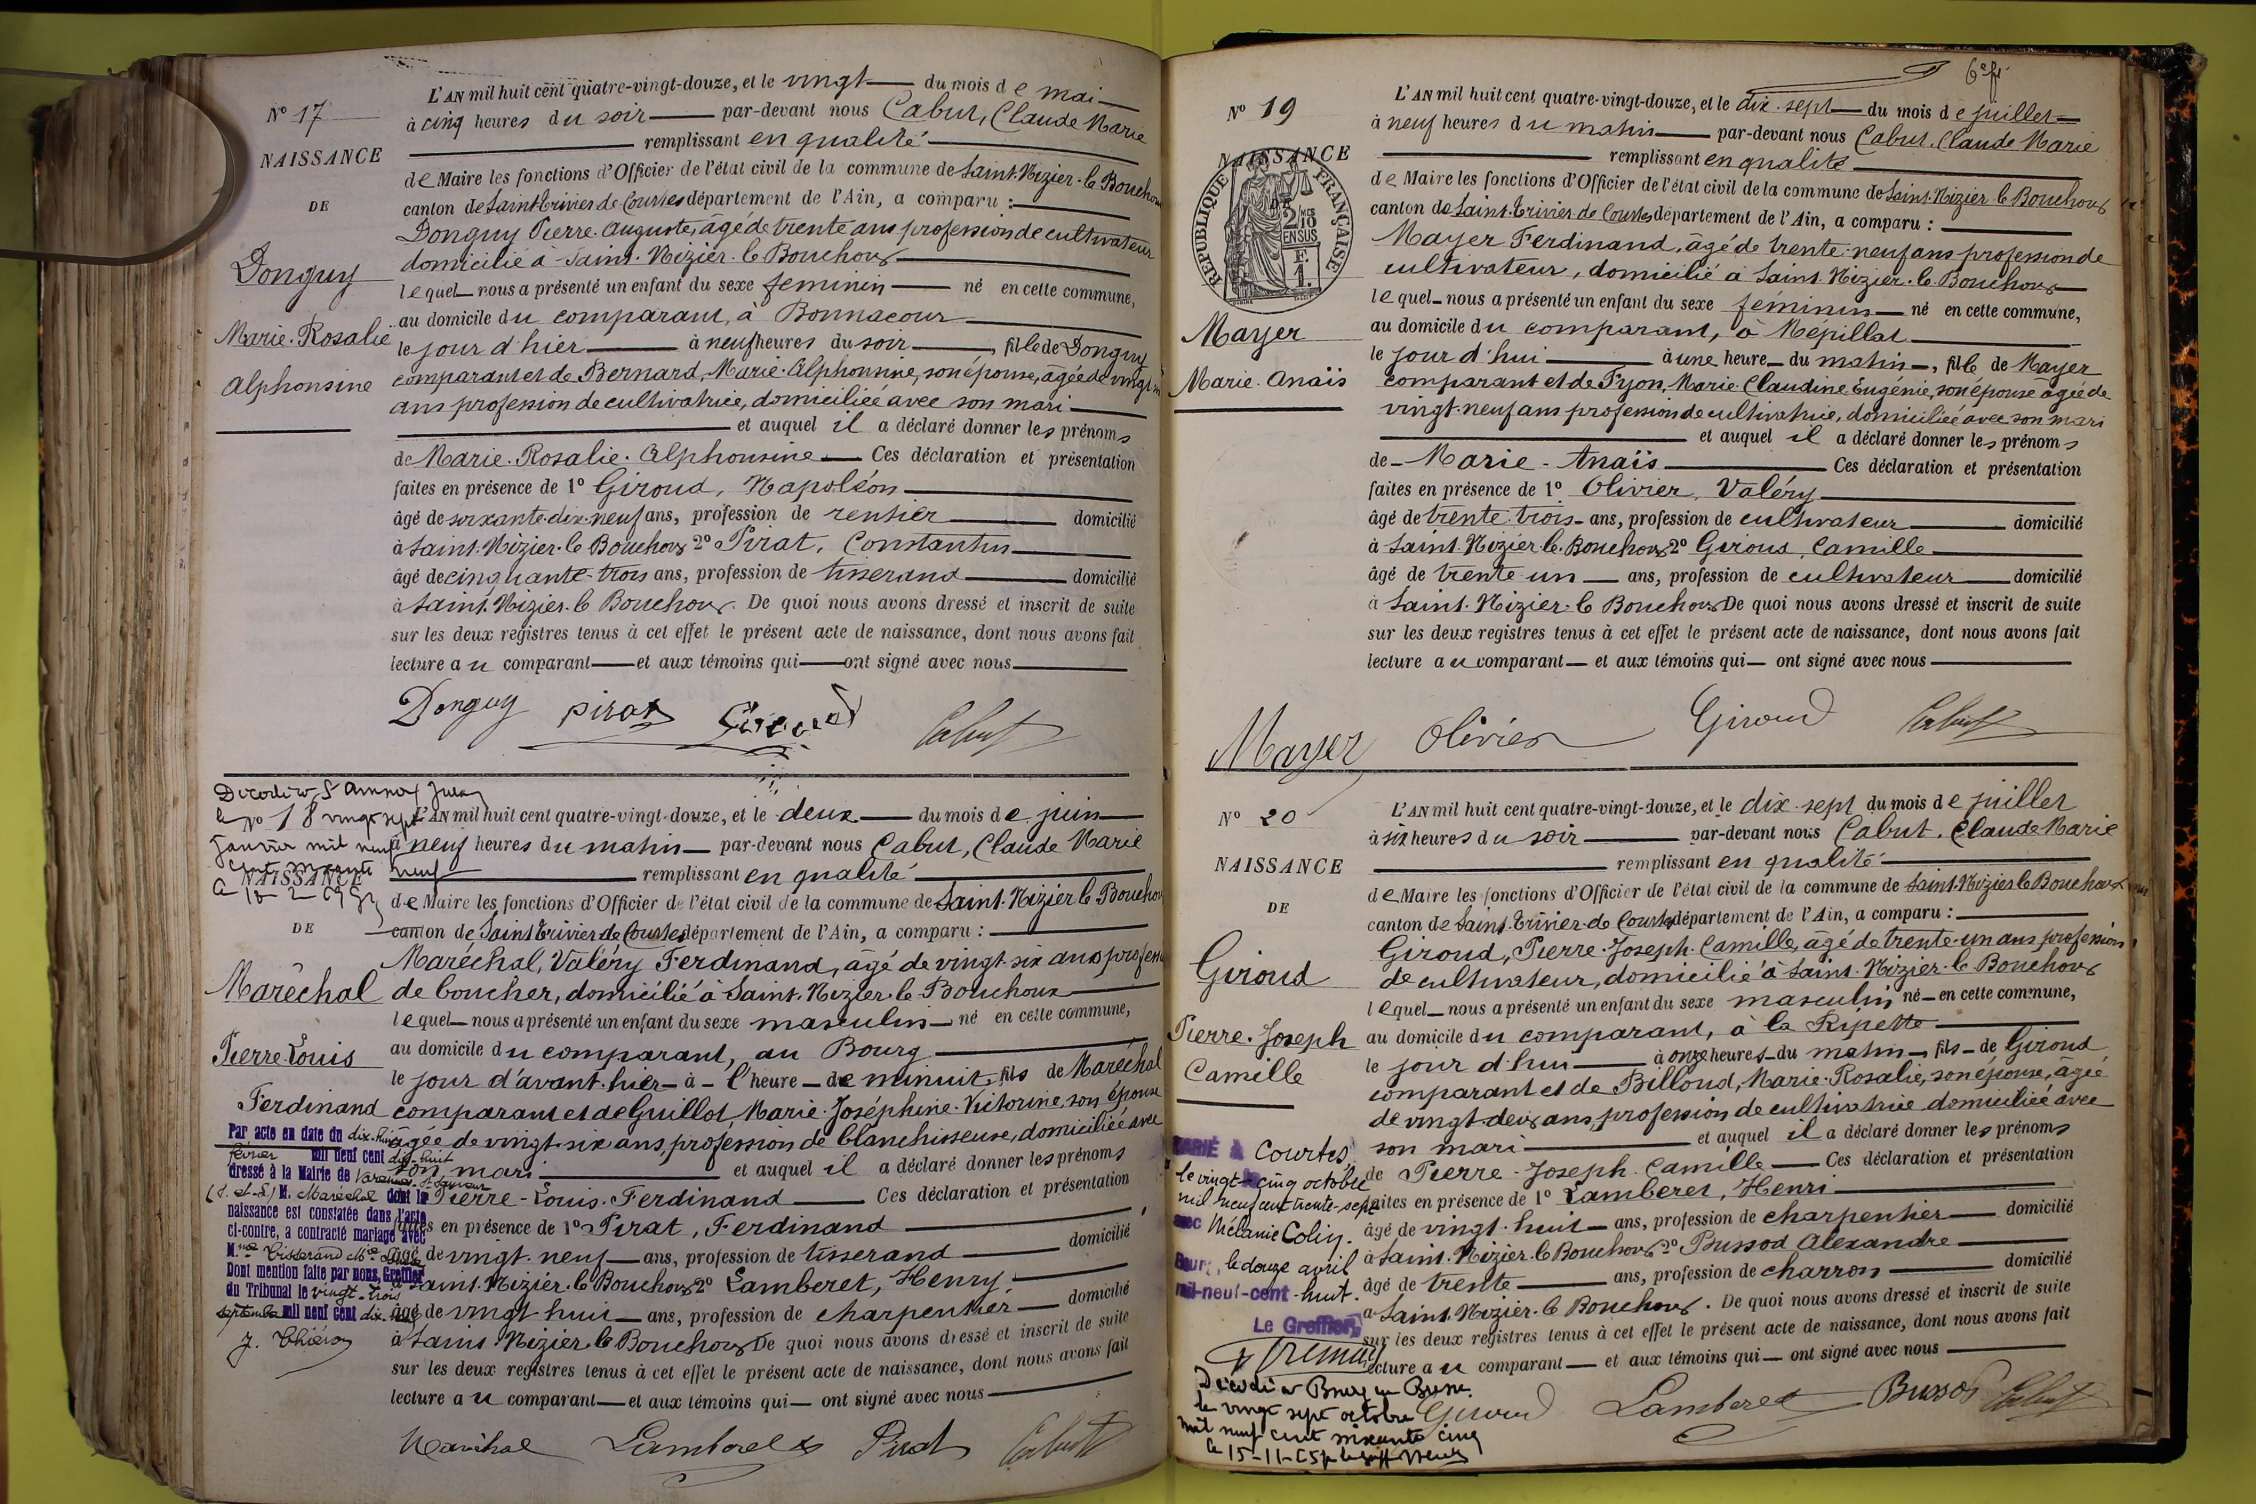 N° 17
NAISSANCE
DE
Donguy
Marie-Rosalie
Alphonsine
L'AN mil huit cent quatre-vingt-douze, et le vingt du mois de mai
à cinq heures du soir par-devant nous Cabut, Claude Marie
remplissant en qualité
de Maire les fonctions d'Officier de l'état civil de la commune de Saint-Nizier-le Bouchoux
canton de Saint-Trivier de Courtes département de l'Ain, a comparu :
Donguy Pierre-Auguste, âgé de trente ans profession de cultivateur
domicilié à Saint-Nizier-le Bouchoux
lequel nous a présenté un enfant du sexe féminin né en cette commune,
au domicile du comparant, à Bonnacour
le jour d'hier à neuf heures du soir, fille de Donguy
comparant et de Bernard, Marie-Alphonsine, son épouse, âgée de vingt
ans profession de cultivatrice, domiciliée avec son mari
et auquel il a déclaré donner les prénoms
de Marie-Rosalie-Alphonsine Ces déclaration et présentation
faites en présence de 1° Giroud, Napoléon
âgé de soixante-dix-neuf ans, profession de rentier domicilié
à Saint-Nizier-le Bouchoux 2° Pirat, Constantin
âgé de cinquante-trois ans, profession de tisserand domicilié
à Saint-Nizier-le Bouchoux. De quoi nous avons dressé et inscrit de suite
sur les deux registres tenus à cet effet le présent acte de naissance, dont nous avons fait
lecture au comparant et aux témoins qui ont signé avec nous
Donguy Pirat Giroud Cabut
Décédé à St Amour Jura
le vingt sept
janvier mil neuf
cent soixante neuf
N° 18
NAISSANCE
DE
Maréchal
Pierre-Louis
Ferdinand
Par acte en date du dix-huit
février mil neuf cent dix-huit
dressé à la Mairie de Varennes-St Sauveur
(S. et L.) M. Maréchal dont la
naissance est constatée dans l'acte
ci-contre, a contracté mariage avec
M. Tisserand
Dont mention faite par nous, Greffier
du Tribunal le vingt-trois
septembre mil neuf cent
J. Thiéron
L'AN mil huit cent quatre-vingt-douze, et le deux du mois de juin
à neuf heures du matin par-devant nous Cabut, Claude Marie
remplissant en qualité
de Maire les fonctions d'Officier de l'état civil de la commune de Saint-Nizier le Bouchoux
canton de Saint Trivier de Courtes département de l'Ain, a comparu :
Maréchal, Valéry Ferdinand, âgé de vingt-six ans profession
de boucher, domicilié à Saint-Nizier-le-Bouchoux
lequel nous a présenté un enfant du sexe masculin né en cette commune,
au domicile du comparant, au Bourg
le jour d'avant-hier à l'heure de minuit, fils de Maréchal
comparant et de Guillot, Marie-Joséphine-Victorine, son épouse
âgée de vingt-six ans, profession de blanchisseuse, domiciliée avec
son mari et auquel il a déclaré donner les prénoms
de Pierre-Louis-Ferdinand Ces déclaration et présentation
faites en présence de 1° Pirat, Ferdinand
âgé de vingt-neuf ans, profession de tisserand domicilié
à Saint-Nizier-le Bouchoux 2° Lamberet, Henry
âgé de vingt huit ans, profession de charpentier domicilié
à Saint Nizier-le Bouchoux De quoi nous avons dressé et inscrit de suite
sur les deux registres tenus à cet effet le présent acte de naissance, dont nous avons fait
lecture au comparant et aux témoins qui ont signé avec nous
Maréchal Lamberet Pirat Cabut
6e ft
N° 19
NAISSANCE
RÉPUBLIQUE FRANÇAISE
2/10
EN SUS
F.
1.
Mayer
Marie-Anaïs
L'AN mil huit cent quatre-vingt-douze, et le dix-sept du mois de juillet
à neuf heures du matin par-devant nous Cabut, Claude Marie
remplissant en qualité
de Maire les fonctions d'Officier de l'état civil de la commune de Saint-Nizier le Bouchoux
canton de Saint-Trivier de Courtes département de l'Ain, a comparu :
Mayer Ferdinand, âgé de trente-neuf ans profession de
cultivateur, domicilié à Saint-Nizier-le-Bouchoux
lequel nous a présenté un enfant du sexe féminin né en cette commune,
au domicile du comparant, à Mépillat
le jour d'hui à une heure du matin, fille de Mayer
comparant et de Fyon, Marie-Claudine-Eugénie, son épouse âgée de
vingt-neuf ans profession de cultivatrice, domiciliée avec son mari
et auquel il a déclaré donner les prénoms
de Marie-Anaïs Ces déclaration et présentation
faites en présence de 1° Olivier, Valéry
âgé de trente-trois ans, profession de cultivateur domicilié
à Saint-Nizier-le-Bouchoux 2° Giroud, Camille
âgé de trente-un ans, profession de cultivateur domicilié
à Saint-Nizier-le Bouchoux De quoi nous avons dressé et inscrit de suite
sur les deux registres tenus à cet effet le présent acte de naissance, dont nous avons fait
lecture au comparant et aux témoins qui ont signé avec nous
Mayer Olivier Giroud Cabut
N° 20
NAISSANCE
DE
Giroud
Pierre-Joseph
Camille
MARIÉ à Courtes
le vingt-cinq octobre
mil neuf cent trente-sept
avec Mélanie Colin.
Bourg, le douze avril
mil-neuf-cent-huit.
Le Greffier,
Décédé à Bourg en Bresse
le vingt sept octobre
mil neuf cent soixante cinq
L'AN mil huit cent quatre-vingt-douze, et le dix-sept du mois de juillet
à six heures du soir par-devant nous Cabut, Claude Marie
remplissant en qualité
de Maire les fonctions d'Officier de l'état civil de la commune de Saint-Nizier le Bouchoux
canton de Saint-Trivier-de Courtes département de l'Ain, a comparu :
Giroud, Pierre-Joseph-Camille, âgé de trente-un ans profession
de cultivateur, domicilié à Saint-Nizier-le Bouchoux
lequel nous a présenté un enfant du sexe masculin né en cette commune,
au domicile du comparant, à la Ripette
le jour d'hui à onze heures du matin, fils de Giroud
comparant et de Billoud, Marie-Rosalie, son épouse, âgée
de vingt-deux ans, profession de cultivatrice domiciliée avec
son mari et auquel il a déclaré donner les prénoms
de Pierre-Joseph-Camille Ces déclaration et présentation
faites en présence de 1° Lamberet, Henri
âgé de vingt-huit ans, profession de charpentier domicilié
à Saint-Nizier-le Bouchoux 2° Bussod Alexandre
âgé de trente ans, profession de charron domicilié
à Saint-Nizier-le Bouchoux. De quoi nous avons dressé et inscrit de suite
sur les deux registres tenus à cet effet le présent acte de naissance, dont nous avons fait
lecture au comparant et aux témoins qui ont signé avec nous
Giroud Lamberet Bussod Cabut